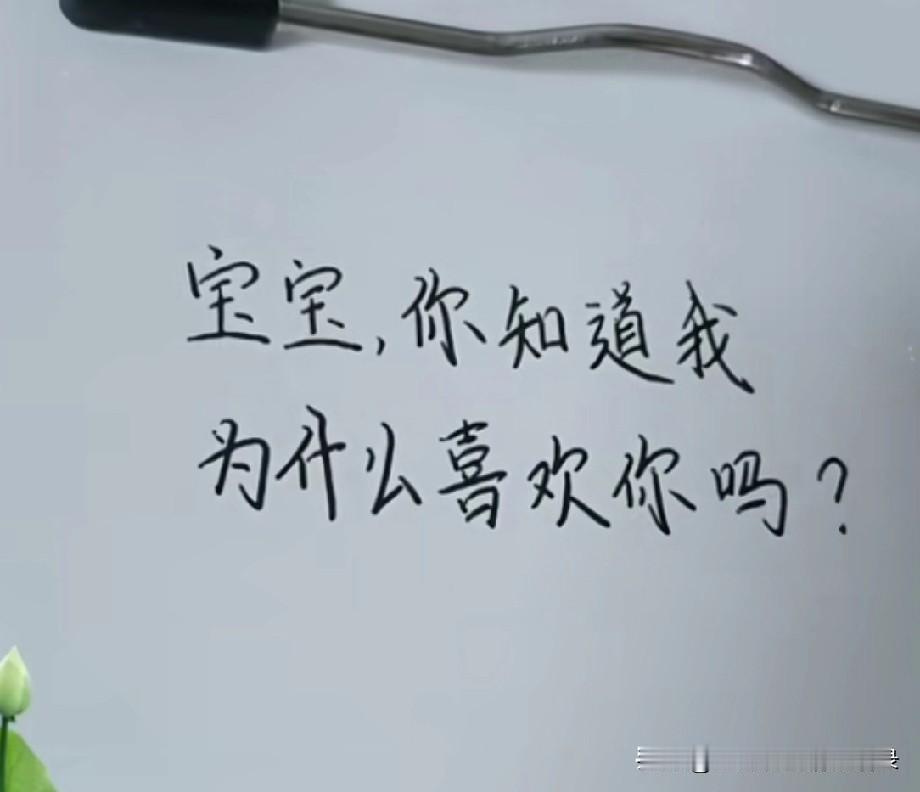 宝宝,你知道我
为什么喜欢你吗?